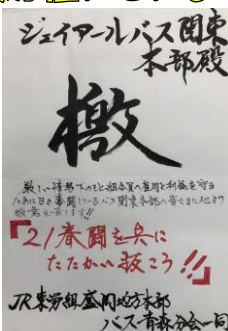 ジェイアールバス関東
本部殿
檄
厳しい情勢下のもと組合員の雇用と利益を守る
ために日々奮闘しているバス関東本部の皆さまに心より
敬意を表します!!
『21春闘を共に
たたかい抜こう!!』
JR東労組盛岡地方本部
バス青森分会一同